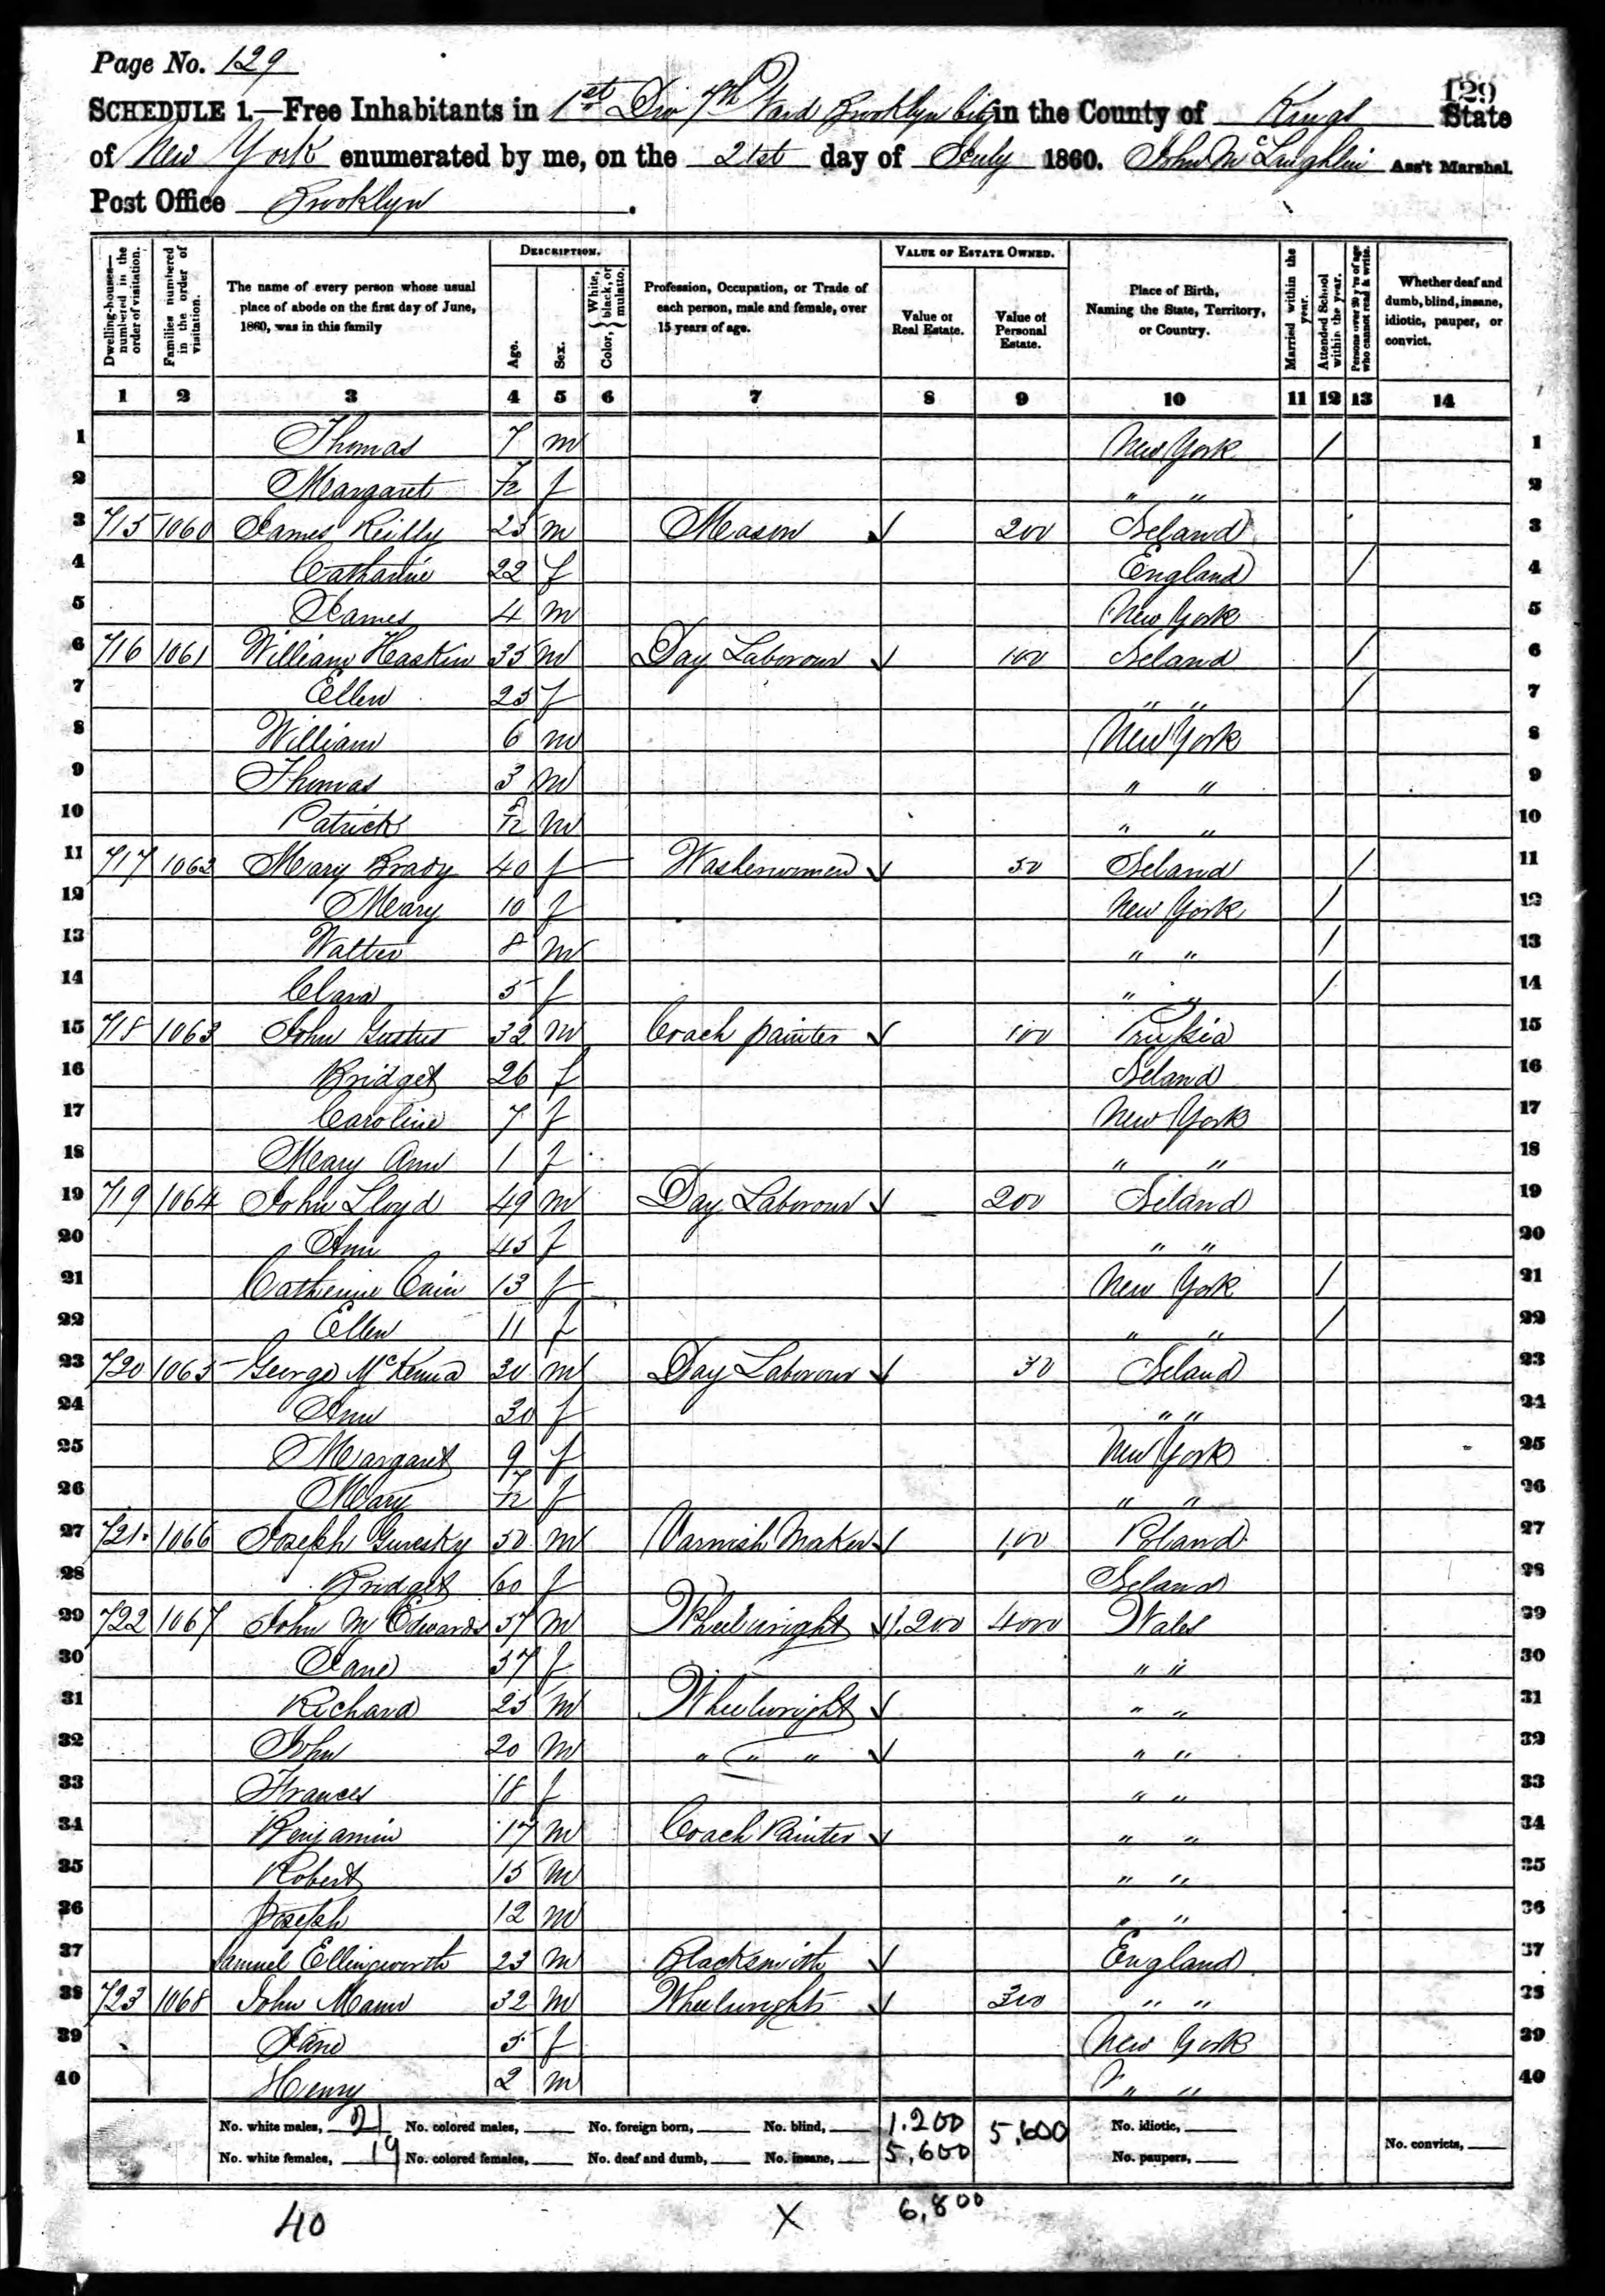 Page No. 129
129
SCHEDULE 1.—Free Inhabitants in 1st Div 7th Ward Brooklyn City in the County of Kings State
of New York enumerated by me, on the 21st day of July 1860. John McLaughlin Ass't Marshal.
Post Office Brooklyn.
Dwelling-houses—numbered in the order of visitation.
Families numbered in the order of visitation.
The name of every person whose usual place of abode on the first day of June, 1860, was in this family
DESCRIPTION.
Age.
Sex.
Color, { White, black, or mulatto.
Profession, Occupation, or Trade of each person, male and female, over 15 years of age.
VALUE OF ESTATE OWNED.
Value of Real Estate.
Value of Personal Estate.
Place of Birth, Naming the State, Territory, or Country.
Married within the year.
Attended School within the year.
Persons over 20 y'rs of age who cannot read & write.
Whether deaf and dumb, blind, insane, idiotic, pauper, or convict.
1 2 3 4 5 6 7 8 9 10 11 12 13 14
1 Thomas 7 m New York / 1
2 Margaret 7/12 f " " 2
3 715 1060 James Reilly 25 m Mason 200 Ireland 3
4 Catharine 22 f England / 4
5 James 4 m New York 5
6 716 1061 William Haskin 35 m Day Laborour 100 Ireland / 6
7 Ellen 25 f " " / 7
8 William 6 m New York 8
9 Thomas 3 m " " 9
10 Patrick m " " 10
11 717 1062 Mary Brady 40 f Washerwomen 50 Ireland / 11
12 Mary 10 f New York / 12
13 Walter 8 m " " / 13
14 Clara 5 f " " / 14
15 718 1063 John Gustus 32 m Coach painter 100 Prussia 15
16 Bridget 26 f Ireland 16
17 Caroline 7 f New York 17
18 Mary Ann 1 f " " 18
19 719 1064 John Lloyd 49 m Day Laborour 200 Ireland 19
20 Ann 45 f " " 20
21 Catherine Cain 13 f New York / 21
22 Ellen 11 f " " / 22
23 720 1065 George McKenna 30 m Day Laborour 30 Ireland 23
24 Ann 30 f " " 24
25 Margaret 9 f New York 25
26 Mary 7/12 f " " 26
27 721 1066 Joseph 50 m Varnish Maker 100 Poland 27
28 Bridget 60 f Ireland 28
29 722 1067 John M Edwards 57 m Wheelwright 1.200 4000 Wales 29
30 Jane 57 f " " 30
31 Richard 25 m Wheelwright " " 31
32 John 20 m " " " " " 32
33 Frances 18 f " " 33
34 Benjamin 17 m Coach Painter " " 34
35 Robert 15 m " " 35
36 Joseph 12 m " " 36
37 Samuel Ellingworth 23 m Blacksmith England 37
38 723 1068 John Mann 32 m Wheelwright 300 " " 38
39 Jane 5 f New York 39
40 Henry 2 m " " 40
No. white males, 21 No. colored males, No. foreign born, No. blind, 1.200 5,600 No. idiotic,
No. white females, 19 No. colored females, No. deaf and dumb, No. insane, 5,600 No. paupers, No. convicts,
40 X 6,800